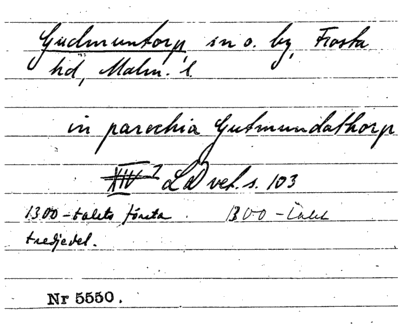 Gudmuntorp sn o. by, Frosta
hd, Malm. l.
in parochia Gutmundathorp
XIV LD vet. s. 103
1300-talets första 1300-talet
tredjedel.
Nr 5550.